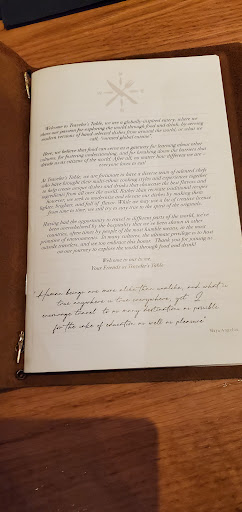 Welcome to Traveler's Table, we are a globally-inspired eatery, where we
share our passion for exploring the world through food and drink, by serving
modern versions of hand-selected dishes from around the world, or what we
call, "curated global cuisine".
Here, we believe that food can serve as a gateway for learning about other
cultures, for fostering understanding, and for breaking down the barriers that
divide us as citizens of the world. After all, no matter how different we are -
everyone loves to eat!
At Traveler's Table, we are fortunate to have a diverse team of talented chefs
who have brought their individual cooking styles and experience together
to help create unique dishes and drinks that showcase the best flavors and
ingredients from all over the world. Rather than recreate traditional recipes
however, we seek to modernize and elevate our dishes by making them
lighter, brighter, and full of flavor. While we may use a bit of creative license
from time to time, we always try to stay true to the spirit of the original.
Having had the opportunity to travel to different parts of the world, we've
been overwhelmed by the hospitality that we've been shown in other
countries, often times by people of the most humble means, or the most
primitive of circumstances. In many cultures, the ultimate privilege is to host
outside travelers, and we too embrace this honor. Thank you for joining us
on our journey to explore the world through food and drink!
Welcome to our table,
Your Friends at Traveler's Table
"Human beings are more alike than unalike, and what is
true anywhere is true everywhere, yet I
encourage travel to as many destinations as possible
for the sake of education as well as pleasure"
Maya Angelou